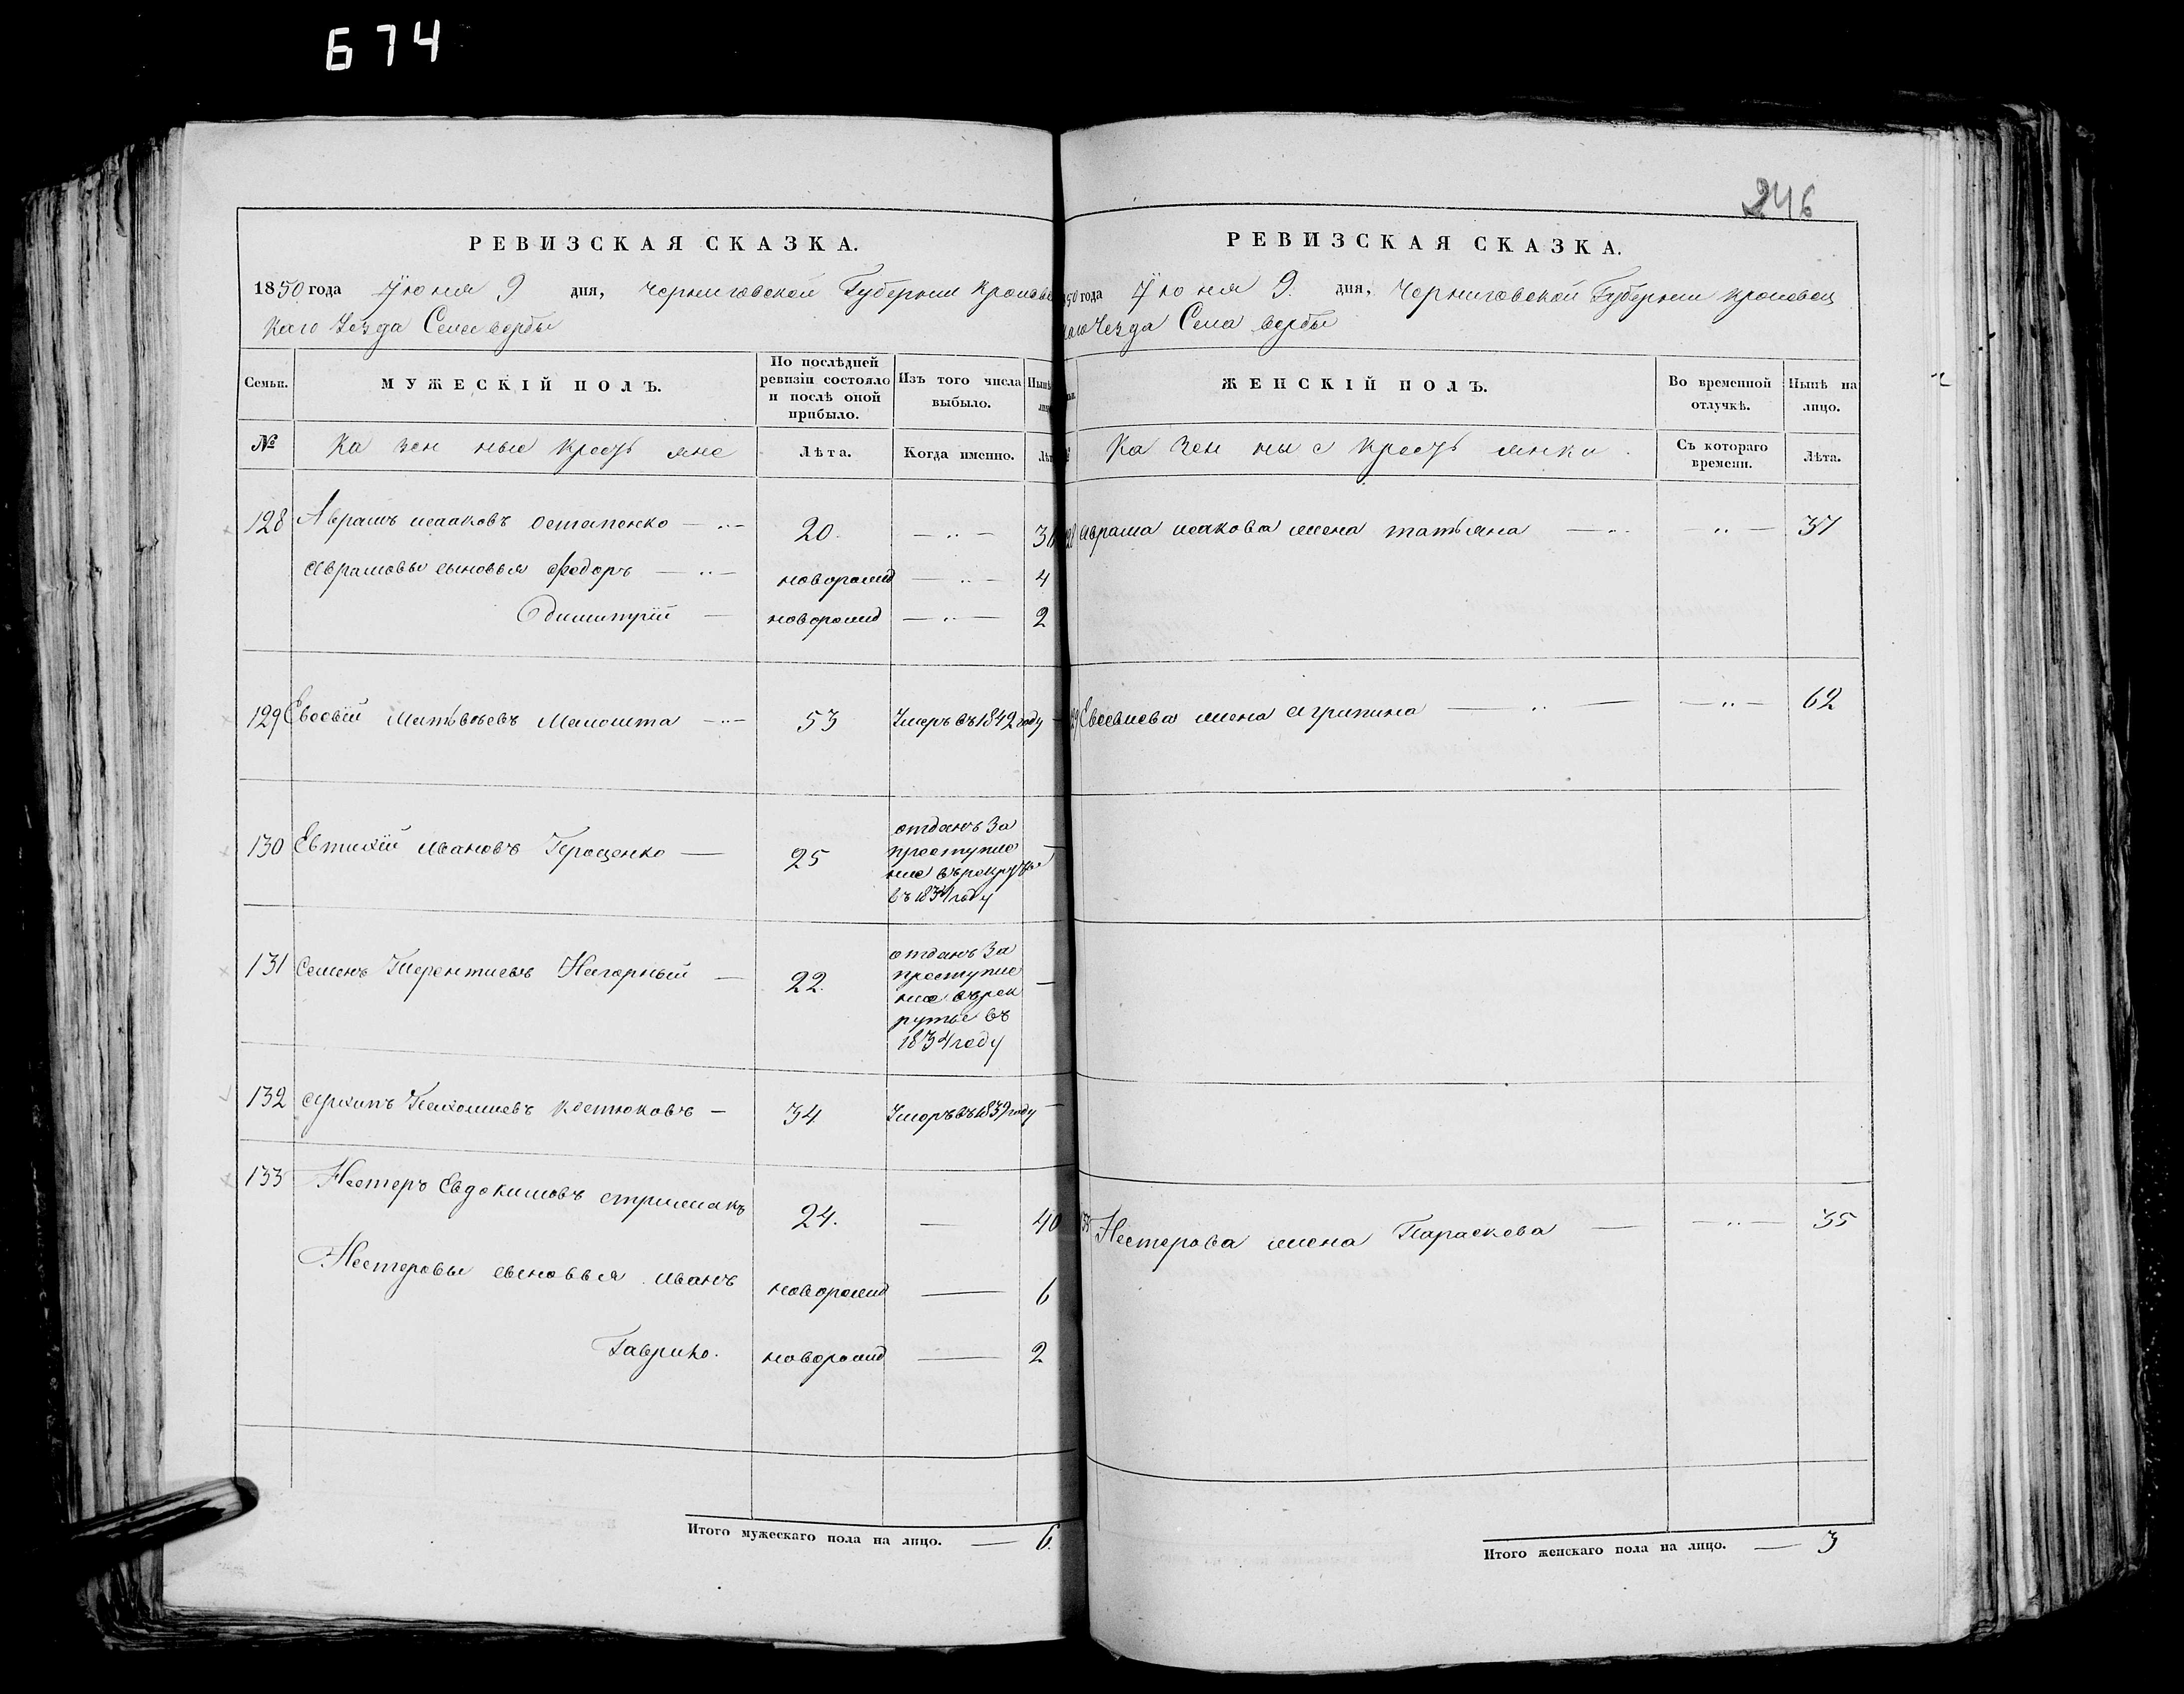 674
246
РЕВИЗСКАЯ СКАЗКА.
1850 года Іюня 9 дня, Черниговской Губерніи Кролевец
каго Уезда Села вербы
Семьи. МУЖЕСКІЙ ПОЛЪ. По послѣдней ревизіи состояло и послѣ оной прибыло. Изъ того числа выбыло. Нынѣ
№ Ка зен ные кресть яне Лѣта. Когда именно. Лѣт
128 Аврамъ исааковъ Остапенко 20. 36
Аврамовы сыновья Федоръ новорожд 4
Димитрій новорожд 2
129 Евсевій Матвѣевъ Малошта 53 Умеръ въ 1842 году
130 Евтихій Ивановъ Герощенко 25 отданъ за
преступле
ніе въ рекруты
въ 1834 году
131 Семенъ Терентиевъ Нагорный 22. отданъ за
преступле
ніе въ рек
руты въ
1834 году
132 Архипъ Пахомиевъ Костюковъ 34 Умеръ въ 1839 году
133 Нестеръ Евдокимовъ стрижакъ 24. 40
Нестеровы сыновья Иванъ новорожд 6
Гаврило. новорожд 2
Итого мужескаго пола на лицо. 6.
РЕВИЗСКАЯ СКАЗКА.
50 года Іюня 9. дня, Черниговской Губерніи кролевец
каго Уезда Села вербы
ЖЕНСКІЙ ПОЛЪ. Во временной отлучкѣ. Нынѣ на лицо.
Ка зен ны е кресть янки Съ котораго времени. Лѣта.
Аврама исакова жена татьяна 37
Евсевиева жена Агрипина 62
Нестерова жена Параскева 35
Итого женскаго пола на лицо. 3